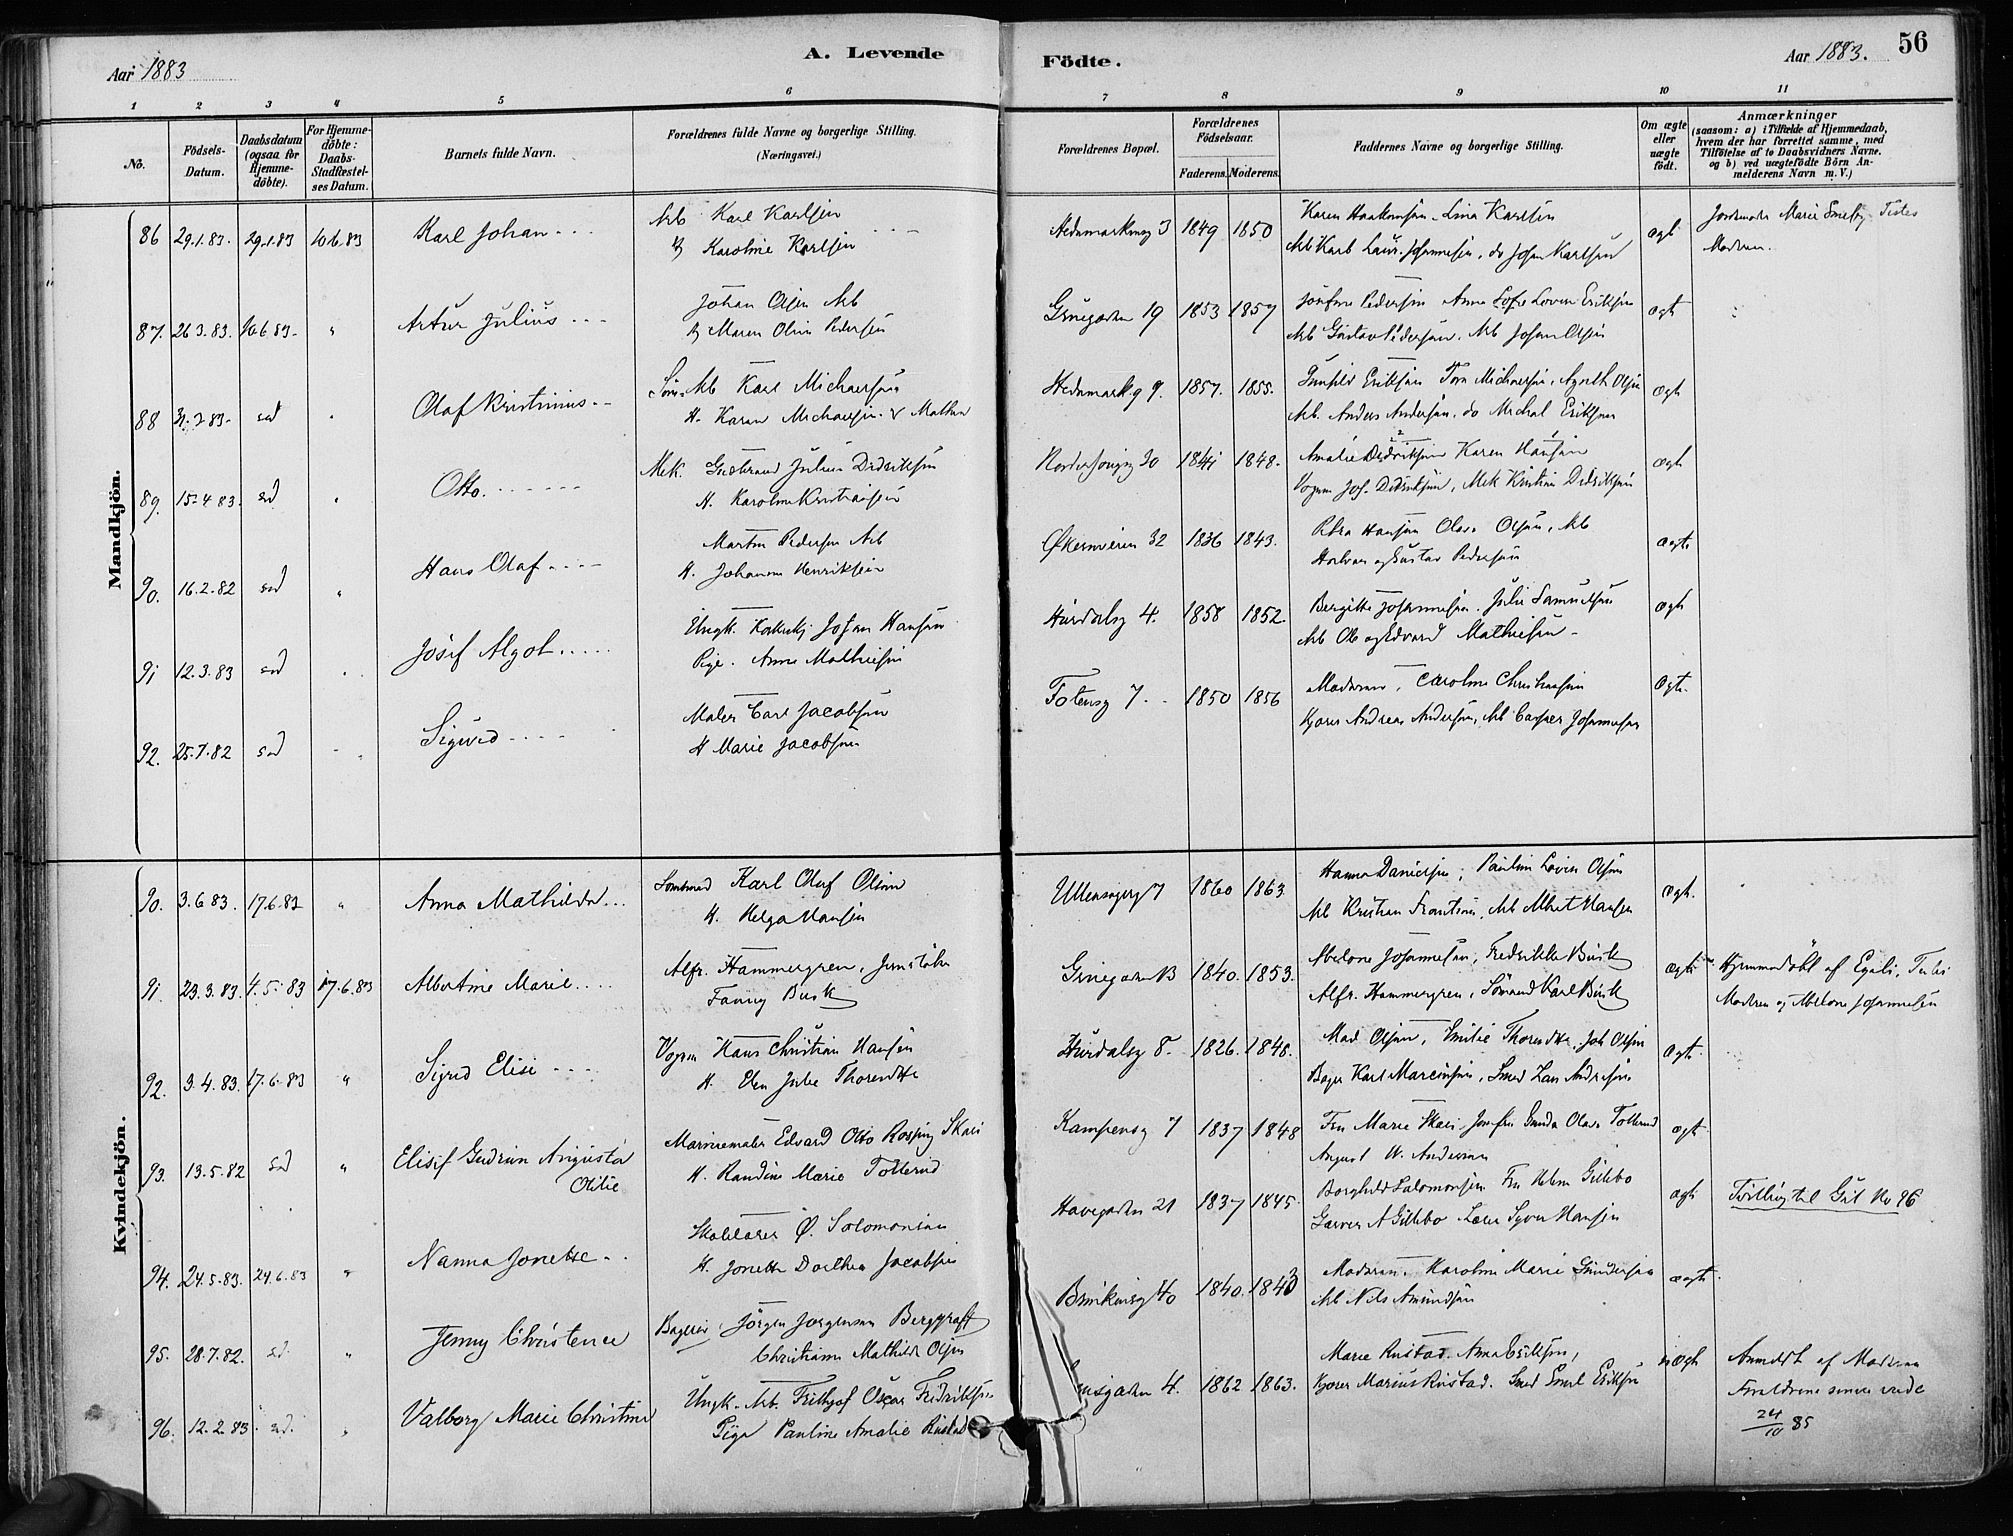 Aar 1883
A. Levende
Födte.
Aar 1883.
56
1 2 3 4 5 6 7 8 9 10 11
No.
Födsels-Datum.
Daabsdatum (ogsaa for Hjemme-döbte).
For Hjemme-döbte: Daabs-Stadfæstel-ses Datum.
Barnets fulde Navn.
Forældrenes fulde Navne og borgerlige Stilling.
(Næringsvei.)
Forældrenes Bopæl.
Forældrenes Födselsaar.
Faderens. Moderens.
Faddernes Navne og borgerlige Stilling.
Om ægte eller uægte födt.
Anmærkninger
(saasom: a) i Tilfælde af Hjemmedaab,
hvem der har forrettet samme, med
Tilföielse af to Daabsvidners Navne.
og b) ved uægtefödte Börn An-
melderens Navn m. V.)
Mandkjön.
86 29.1.83. 29.1.83 10.6.83 Karl Johan
Arb Karl Karlsen
H Karoline Karlsen
Hedemarksvg 3 1849 1850
Karen Haakonsen. Lina Karlsen
Arb Karl Laur. Johannesen, do Johan Karlsen
ægt
Jordmoder Marie Smeby Testes
Modren.
87. 26.3.83. 10.6.83 " Artur Julius
Johan Olsen Arb
H Maren Oline Pedersen
Grinigaden 19 1853 1857
Pedersen Anna Lovise Eriksen
Arb Gustav Pedersen, Arb Johan Olsen
ægt
88 83 sad Olaf Kristinius
Arb Karl Michaelsen
H. Karen Michaelsen
Hedemarkg 9. 1857. 1855.
Gunhild Eriksen Michaelsen, Agnethe Olsen
Arb. Anders Andersen. do Michal Eriksen
ægt
89. 15.4 83. sad Otto.
Mek. Gulbrand Julius Didriksen
H. Karoline Kristiansen
30 1841 1848.
Amalie Didriksen Karen Hansen
Vognm Joh. Didriksen, Mek Kristian Didriksen
ægt
90. 16.2.82 sad " Hans Olaf
Martin Pedersen Arb
H. Johanne Henriksen
Økernveien 32 1836 1843.
Petra Hansen Olava Olsen, Arb
Halvor og Gustav Pedersen
ægte
91 12.3.83 sad Josef Algot
Ungk. Johan Hansen
Pige. Anna Mathiesen
Hurdalsg 4. 1858 1852.
Bergitte Johannesen. Julie Samuelsen
Arb Ole og Edvard Mathiesen
ægt
92. 25.7.82 sad Sigurd
Maler Carl Jacobsen
H Marie Jacobsen
Totensg 7 1850 1856
Moderen, Caroline Christiansen
Kjører Andreas Andersen, Arb Casper Johannesen
ægte.
Kvindekjön.
90. 3.6.83. 17.6.83 " Anna Mathilde
Karl Oluf Olsen
H. Helga Hansen
Ullensagerg 7 1860 1863
Hanna Danielsen, Pauline Lovise Olsen
Arb Kristian Frantsen, Arb Albert Hansen
ægt.
91. 23.3.83. 4.5.83 17.6.83 Albertine Marie
Alfr. Hammergren, Jernstøber
Fanny Busk
Grinigaden 13 1840. 1853.
Abelone Johannesen, Fredrikke Busk
Alfr. Hammergren, Sömand Karl Busk
ægte
Hjemmedöbt af Testes
Modren og Abelone Johannesen
92. 3.4.83. 17.6.83 " Sigrid Elise
Vognm Hans Christian Hansen
H. Elen Julie Thoresdtr
Hurdalsg 8. 1826. 1848.
Mad Olsen, Emilie Thoresdtr, Joh Olsen
Bager Karl Marcussen, Smed Lars Andersen
ægte
93. 13.5.82 sad " Elisif Gudrun Augusta
Otilie
Marinemaler Edvard Otto Rossing Skari
H. Randine Marie Tollerud
Kampensg 7 1837 1848
Fru Marie Skari Gunda Olava Tollerud
August W. Andersen
ægt
94. 24.5.83. 24.6.83 " Nanna Jonette
Skolelærer Ø. Salomonsen
H. Jonette Dorthea Jacobsen
Havegaden 21 1837 1845.
Borghild Salomonsen Fru Helene Gillebo
Garver A Gillebo Lærer Syver Hansen
ægte
Tvilling til Gut No 96
95. 28.7.82. sd. " Jenny Christence
Bagersv. Jörgen Jörgensen Berggraff
Christiane Mathilde Olsen
Brinkensg 40 1840. 1843
Moderen. Karoline Marie Gundersen
Arb Nils Amundsen
ægte
96. 12.2.83 sd. " Valborg Marie Christine
Ungk. Arb. Frithjof Oscar Fredriksen
Pige Pauline Amalie Rustad
4. 1862 1863.
Marie Rustad. Anna Eriksen,
Kjører Marius Rustad. Smed Emil Eriksen
uægt
Anmeldt af Modren
Forældrene senere viede
24/10 85